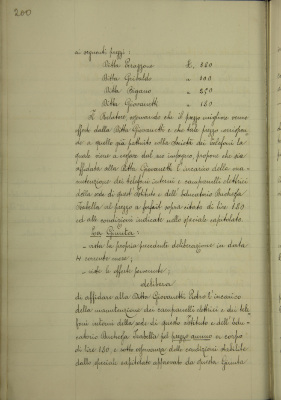 200
ai seguenti prezzi:
Ditta Perazzone L. 220
Ditta Griboldo " 200
Ditta " 250
Ditta Giovanetti " 180
Il Relatore osservando che il prezzo migliore venne
offerto dalla Ditta Giovanetti e che tale prezzo corrispon-
de a quello già pattuito colla Società dei telefoni la
quale venne a cedere dal suo impegno, propone che sia
affidato alla Ditta Giovanetti l'incarico della ma-
nutenzione dei telefoni interni e campanelli elettrici
della sede di quest'Istituto e dell'
Isabella al prezzo a forfait sopra citato di lire 180
ed alle condizioni indicate nello speciale capitolato.
La Giunta:
- vista la propria precedente deliberazione in data
4 corrente mese;
- viste le offerte pervenute;
delibera
di affidare alla Ditta Giovanetti Pietro l'incarico
della manutenzione dei campanelli elettrici e dei tele-
foni interni della sede di questo Istituto e dell'
Isabella pel prezzo annuo a corpo
di lire 180, e sotto osservanza delle condizioni stabilite
dallo speciale capitolato approvato da questa Giunta